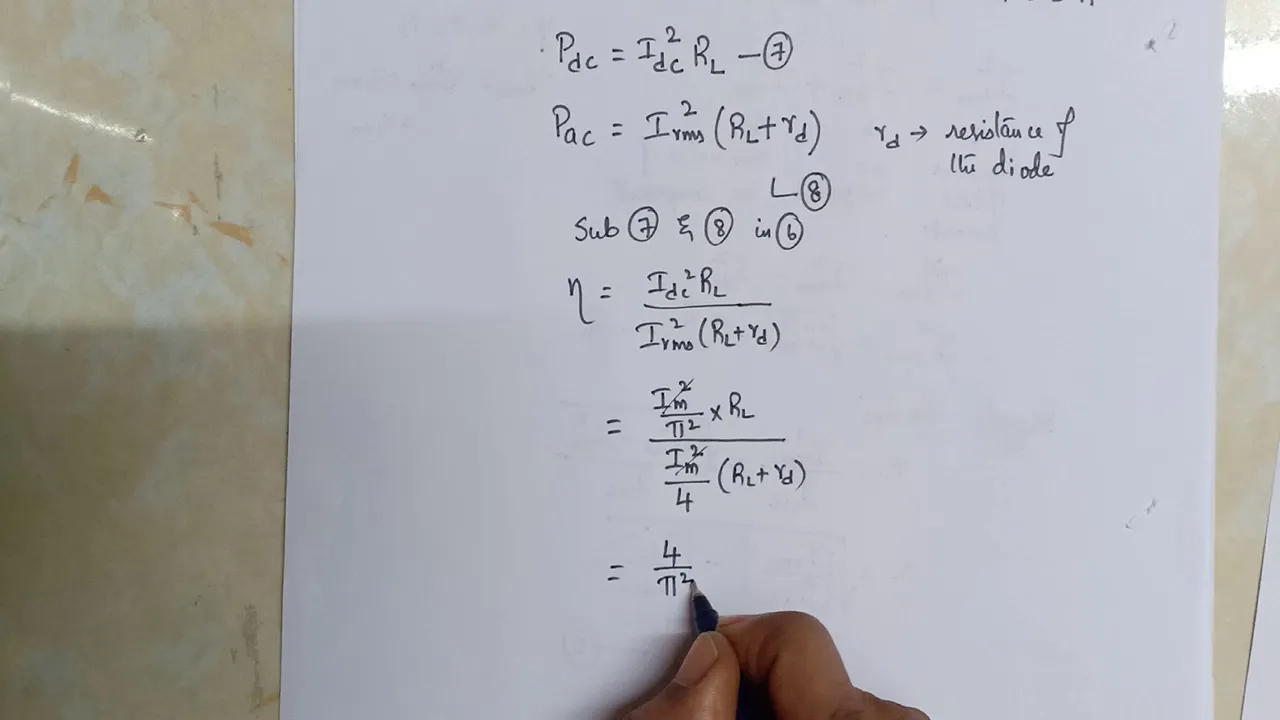 Pdc = Idc² RL — ⑦
Pac = Irms² (RL + rd) rd → resistance of
the diode
└ ⑧
Sub ⑦ & ⑧ in ⑥
η = Idc² RL / Irms² (RL + rd)
= Im²/π² × RL / Im²/4 (RL + rd)
= 4/π²